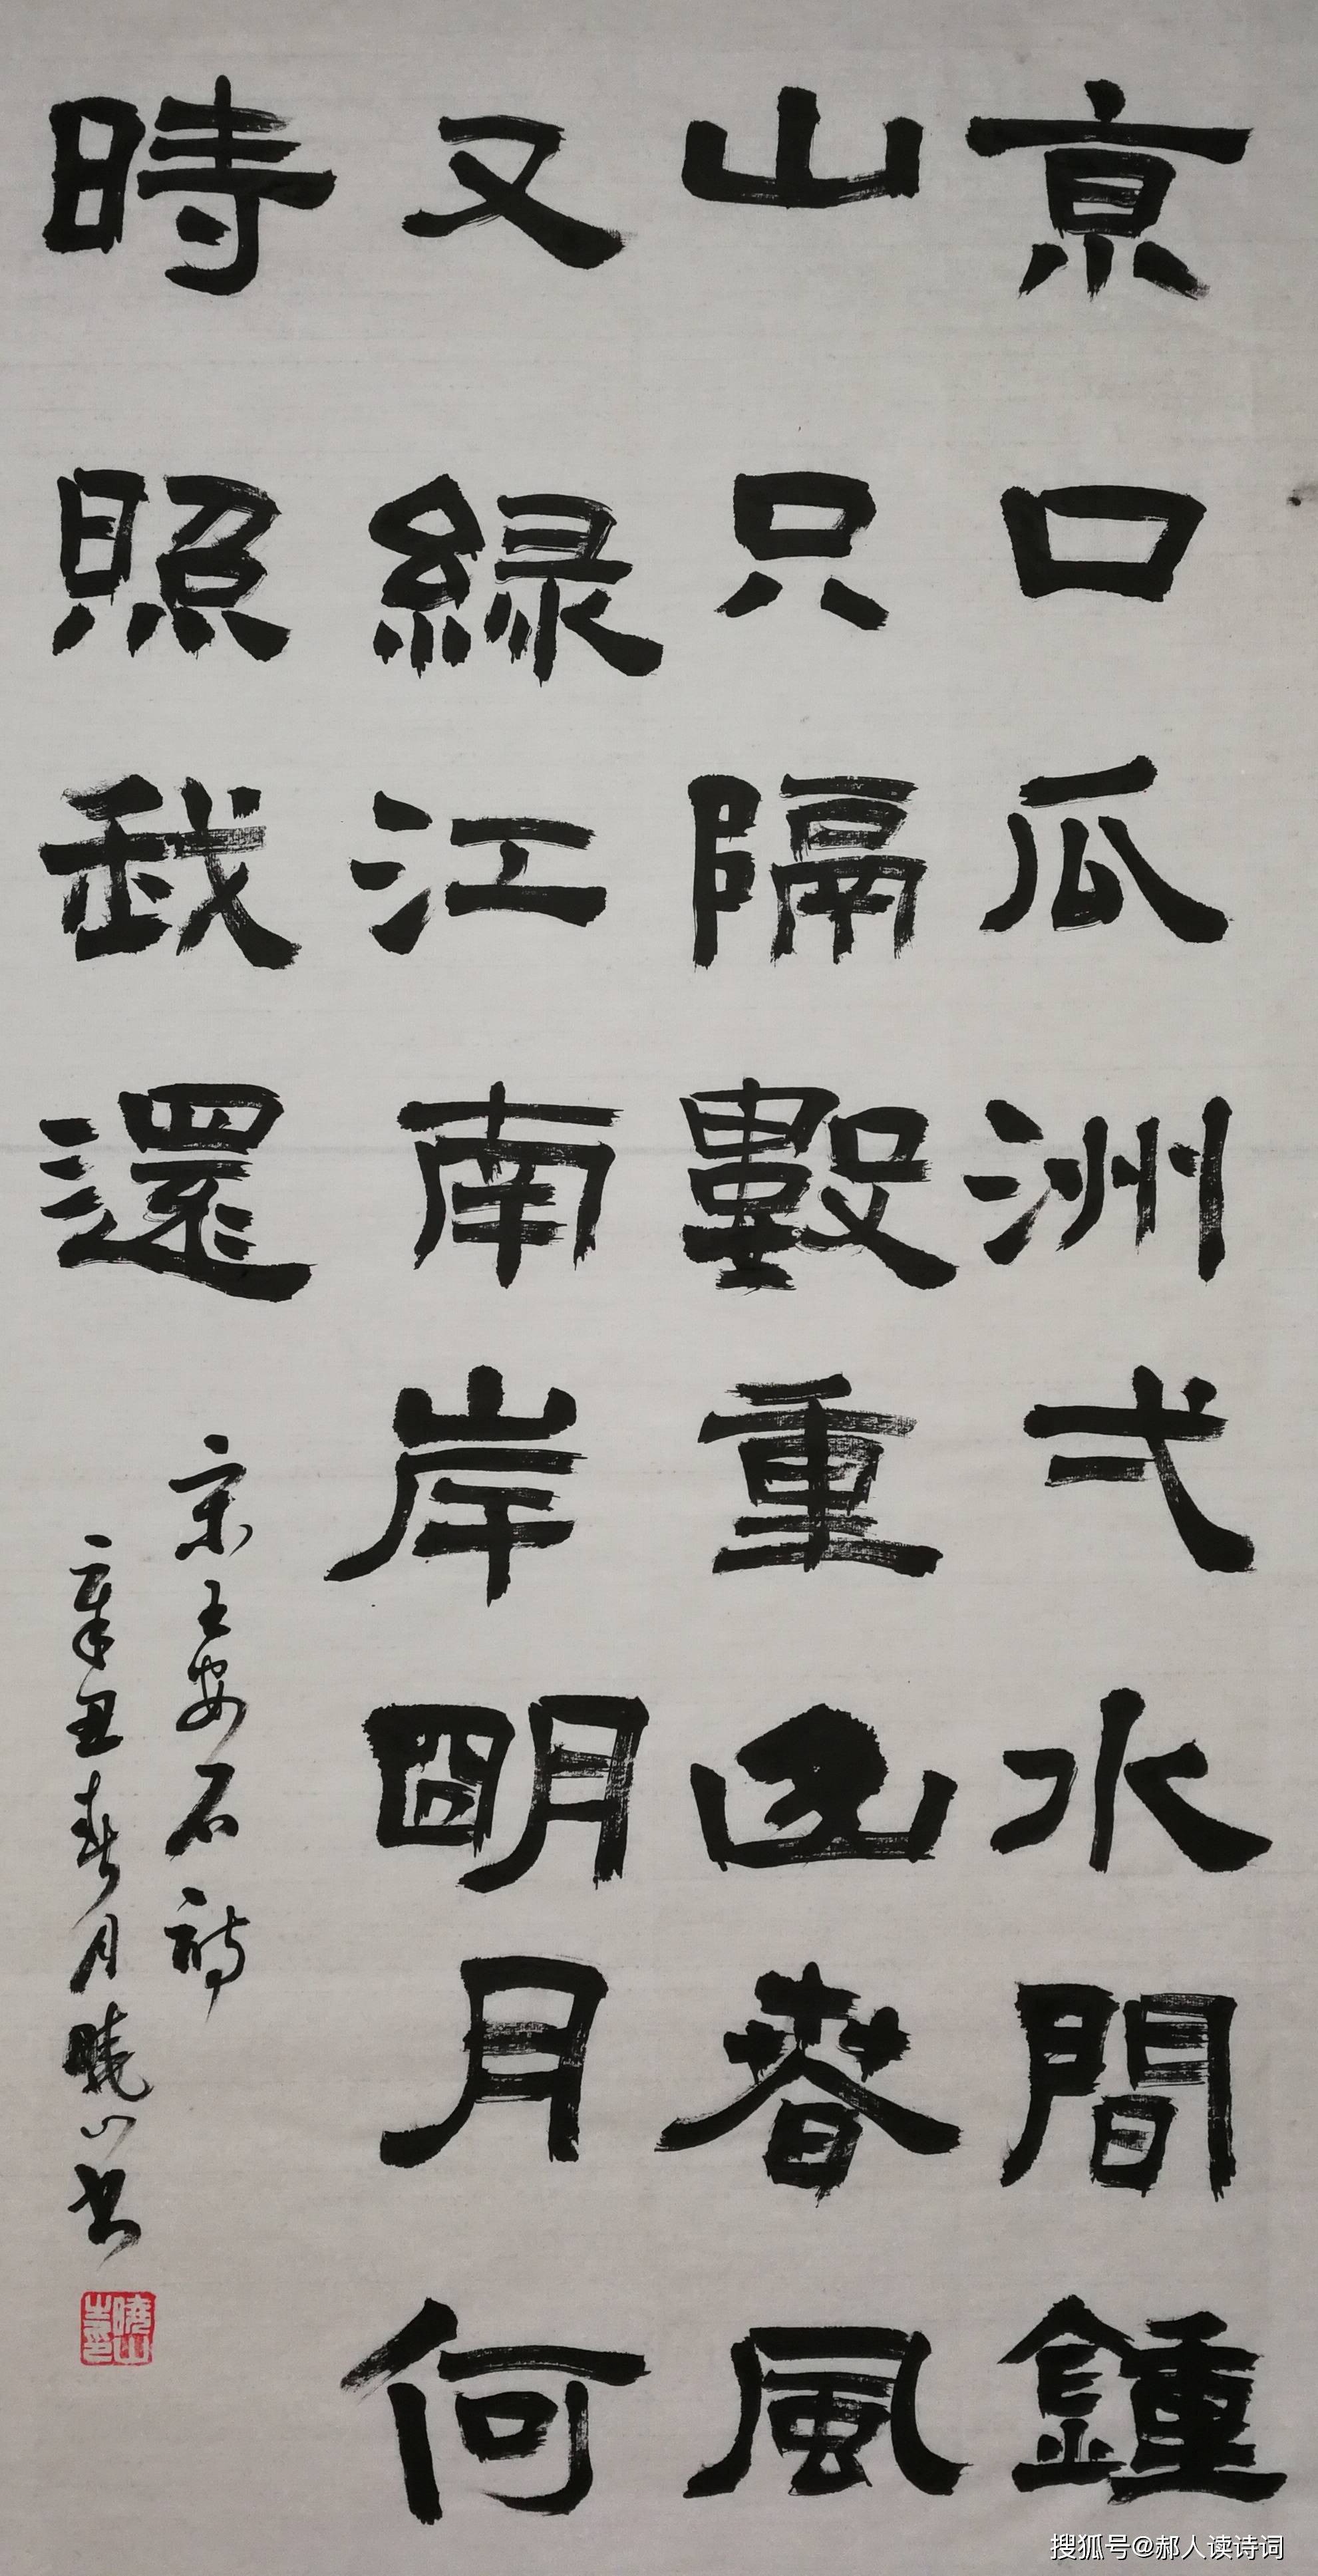 京口瓜洲弌水間鍾
山只隔數重山春風
又緑江南岸明月何
時照我還
宋王安石詩
辛丑春月曉山書
曉山
搜狐号@郝人读诗词